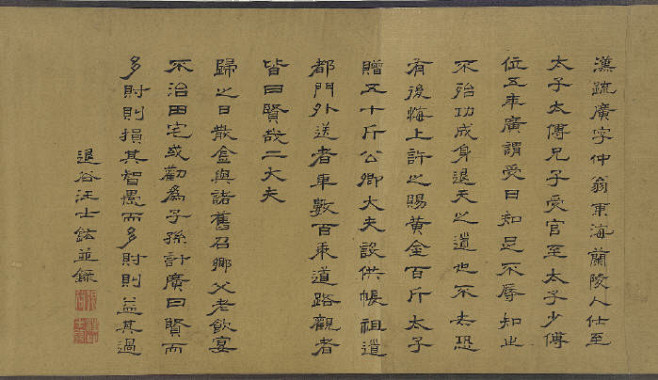 漢疏廣字仲翁東海蘭陵人仕至
太子太傅兄子受官至太子少傅
位五年廣謂受曰知足不辱知止
不殆功成身退天之道也不去恐
有後悔上許之賜黃金百斤太子
贈五十斤公卿大夫設供帳祖道
都門外送者車數百乘道路觀者
皆曰賢哉二大夫
歸之日散金與諸舊召鄉父老飲宴
不治田宅或勸為子孫計廣曰賢而
多財則損其智愚而多財則益其過
退谷汪士鋐並錄